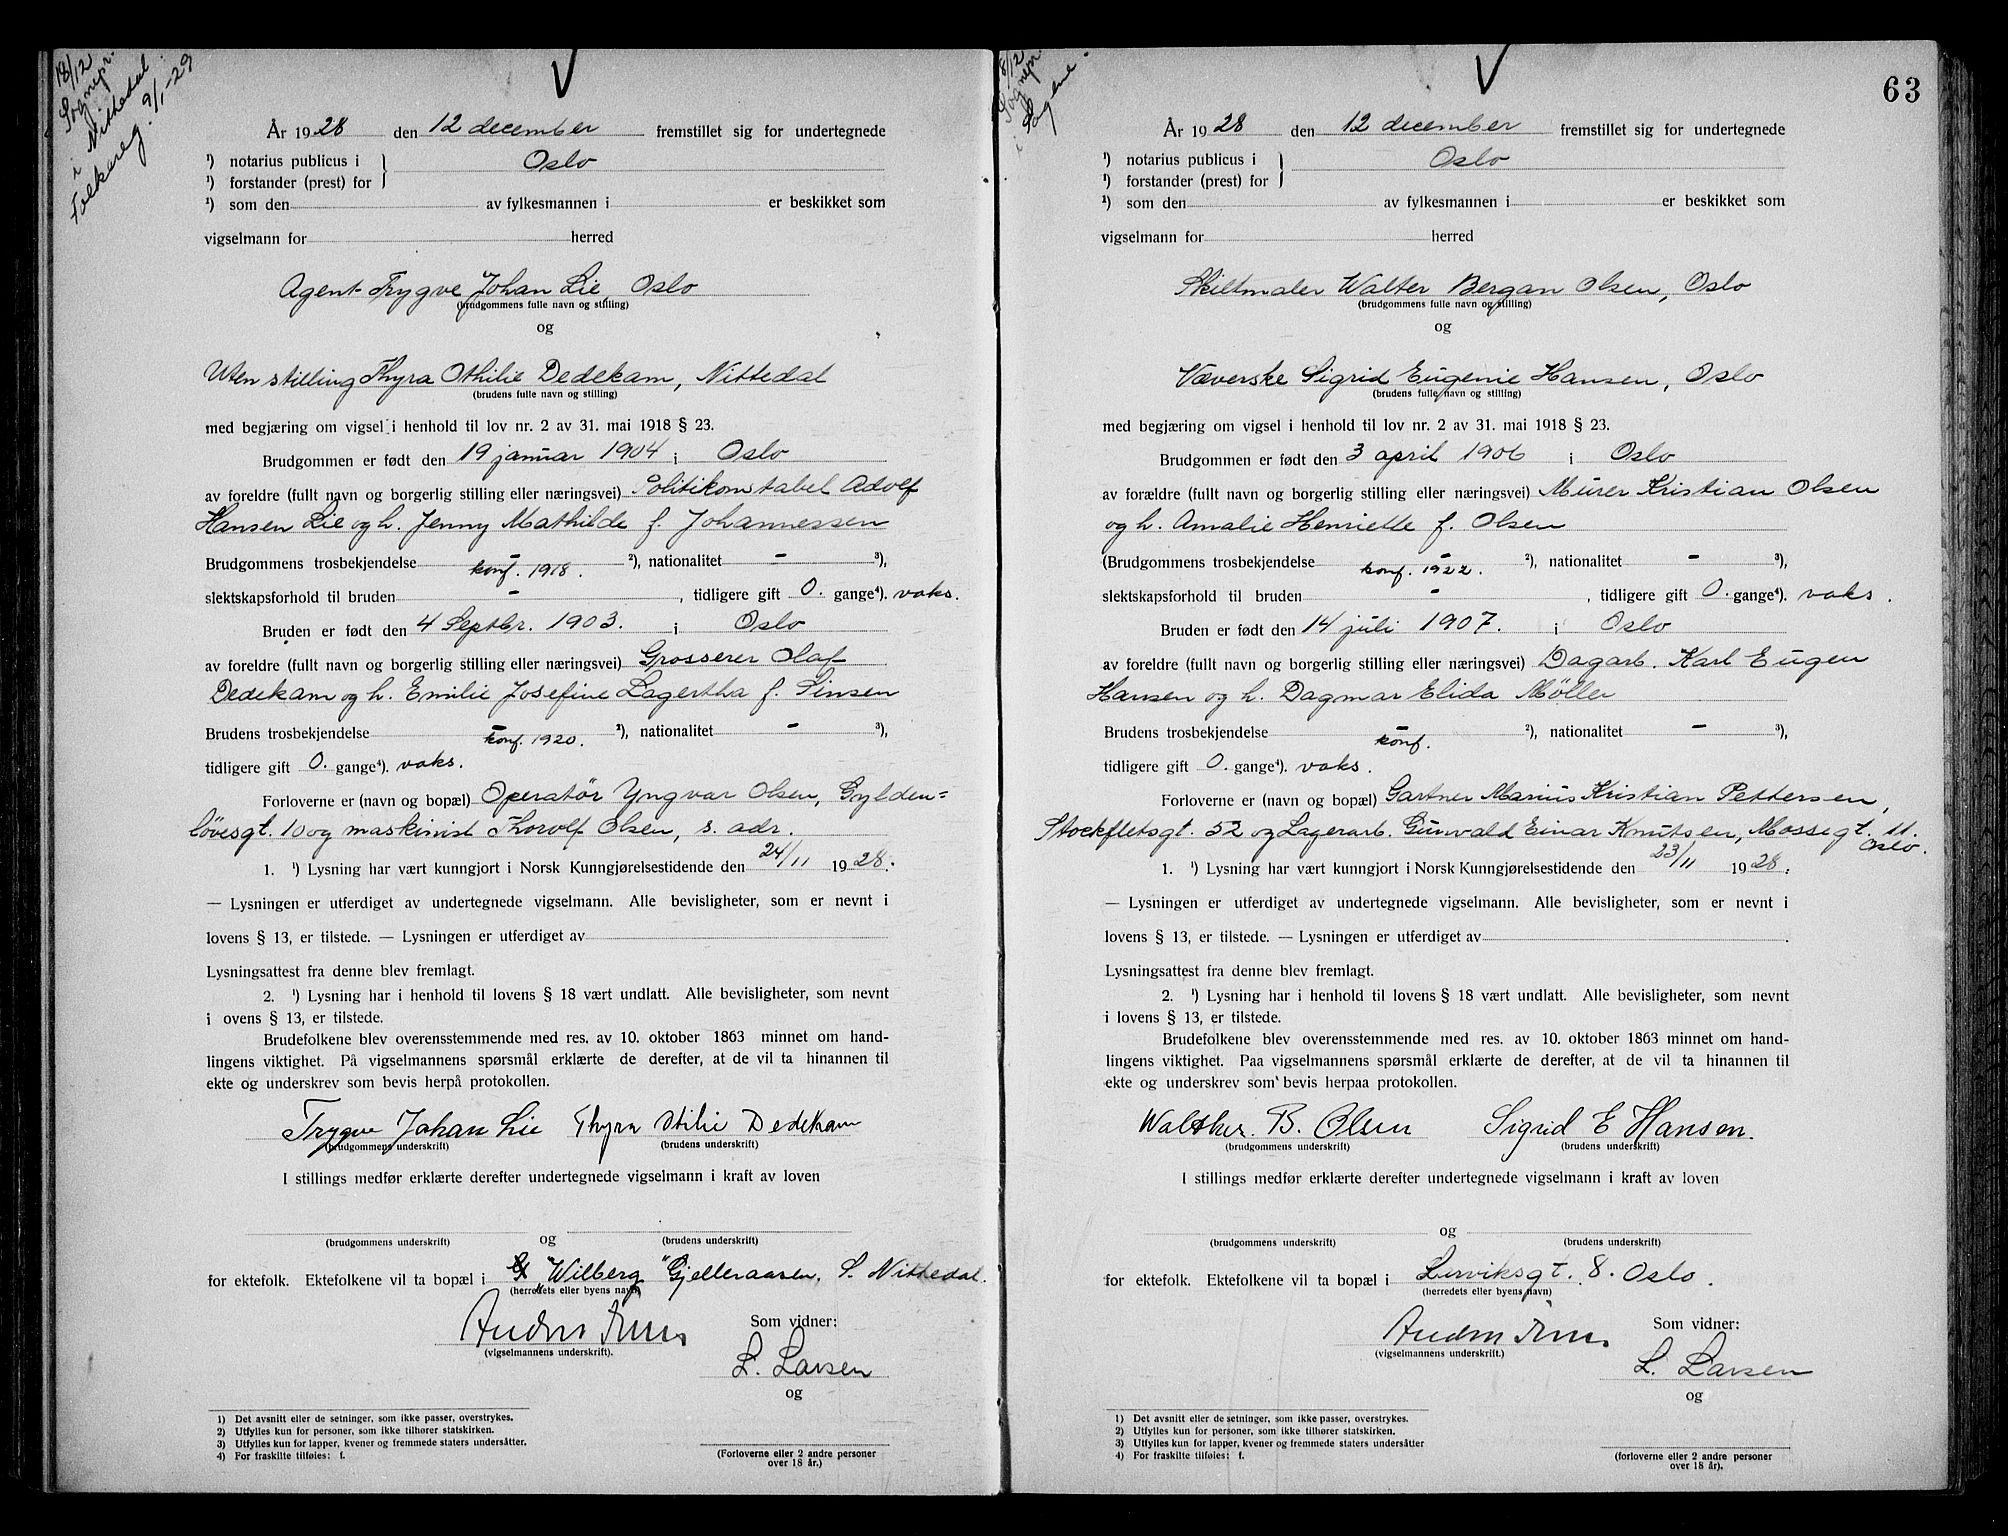 18/12
Sognepr.
i Nittedal.
Folkereg. 9/1-29
År 1928 den 12 december fremstillet sig for undertegnede
¹) notarius publicus i } Oslo
¹) forstander (prest) for
¹) som den av fylkesmannen i er beskikket som
vigselmann for herred
Agent Trygve Johan Lie, Oslo
(brudgommens fulle navn og stilling)
og
Uten stilling Thyra Othilie Dedekam, Nittedal
(brudens fulle navn og stilling)
med begjæring om vigsel i henhold til lov nr. 2 av 31. mai 1918 § 23.
Brudgommen er født den 19 januar 1904 i Oslo
av foreldre (fullt navn og borgerlig stilling eller næringsvei) Politikonstabel Adolf
Hansen Lie og h. Jenny Mathilde f. Johannessen
Brudgommens trosbekjendelse – konf. 1918. ²), nationalitet – ³),
slektskapsforhold til bruden – , tidligere gift 0. gange⁴). vaks.
Bruden er født den 4 Septbr. 1903. i Oslo
av foreldre (fullt navn og borgerlig stilling eller næringsvei) Grosserer Olaf
Dedekam og h. Emilie Josefine Lagertha f. Sinsen
Brudens trosbekjendelse – konf. 1920. ²), nationalitet – ³),
tidligere gift 0. gange⁴). vaks.
Forloverne er (navn og bopæl) Operatør Yngvar Olsen, Gylden=
løvesgt. 10 og maskinist Thorolf Olsen, s. adr.
1. ¹) Lysning har vært kunngjort i Norsk Kunngjørelsestidende den 24/11 1928.
— Lysningen er utferdiget av undertegnede vigselmann. Alle bevisligheter, som er nevnt i
lovens § 13, er tilstede. — Lysningen er utferdiget av
Lysningsattest fra denne blev fremlagt.
2. ¹) Lysning har i henhold til lovens § 18 vært undlatt. Alle bevisligheter, som nevnt
i ovens § 13, er tilstede.
Brudefolkene blev overensstemmende med res. av 10. oktober 1863 minnet om hand-
lingens viktighet. På vigselmannens spørsmål erklærte de derefter, at de vil ta hinannen til
ekte og underskrev som bevis herpå protokollen.
Trygve Johan Lie Thyra Otilie Dedekam
(brudgommens underskrift) (brudens underskrift)
I stillings medfør erklærte derefter undertegnede vigselmann i kraft av loven
og
(brudgommens underskrift) (brudens underskrift)
for ektefolk. Ektefolkene vil ta bopæl i "Wilberg" Gjelleraasen, S. Nittedal.
(herredets eller byens navn)
Som vidner:
(vigselmannens underskrift).
L. Larsen
og
1) Det avsnitt eller de setninger, som ikke passer, overstrykes.
2) Utfylles kun for personer, som ikke tilhører statskirken.
3) Utfylles kun for lapper, kvener og fremmede staters undersåtter.
4) For fraskilte tilføies: f.
(Forloverne eller 2 andre personer
over 18 år.)
63
8/12
Sognepr.
i Sagene.
År 1928 den 12 december fremstillet sig for undertegnede
¹) notarius publicus i } Oslo
¹) forstander (prest) for
¹) som den av fylkesmannen i er beskikket som
vigselmann for herred
Skiltmaler Walter Bergan Olsen, Oslo
(brudgommens fulle navn og stilling)
og
Væverske Sigrid Eugenie Hansen, Oslo
(brudens fulle navn og stilling)
med begjæring om vigsel i henhold til lov nr. 2 av 31. mai 1918 § 23.
Brudgommen er født den 3 april 1906 i Oslo
av forældre (fullt navn og borgerlig stilling eller næringsvei) Murer Kristian Olsen
og h. Amalie Henriette f. Olsen
(Brudgommens trosbekjendelse – konf. 1922. ²), nationalitet – ³),
slektskapsforhold til bruden – , tidligere gift 0. gange⁴). vaks.
Bruden er født den 14 juli 1907. i Oslo
av foreldre (fullt navn og borgerlig stilling eller næringsvei) Dagarb. Karl Eugen
Hansen og h. Dagmar Elida Møller
Brudens trosbekjendelse – konf. ²), nationalitet – ³),
tidligere gift 0. gange⁴). vaks.
Forloverne er (navn og bopæl) Gartner Marius Kristian Pettersen,
Stockfletsgt. 52 og Lagerarb. Gunvald Einar Knutsen, Mossegt. 11.
Oslo.
1. ¹) Lysning har vært kunngjort i Norsk Kunngjørelsestidende den 23/11 1928.
— Lysningen er utferdiget av undertegnede vigselmann. Alle bevisligheter, som er nevnt i
lovens § 13, er tilstede. — Lysningen er utferdiget av
Lysningsattest fra denne blev fremlagt.
2. ¹) Lysning har i henhold til lovens § 18 vært undlatt. Alle bevisligheter, som nevnt
i lovens § 13, er tilstede.
Brudefolkene blev overensstemmende med res. av 10. oktober 1863 minnet om hand-
lingens viktighet. Paa vigselmannens spørsmål erklærte de derefter, at de vil ta hinannen til
ekte og underskrev som bevis herpaa protokollen.
Walther. B. Olsen Sigrid E Hansen.
(brudgommens underskrift) (brudens underskrift)
I stillings medfør erklærte derefter undertegnede vigselmann i kraft av loven
og
(brudgommens underskrift) (brudens underskrift)
for ektefolk. Ektefolkene vil ta bopæl i Lerviksgt. 8. Oslo.
(herredets eller byens navn)
Som vidner:
(vigselmannens underskrift.)
L. Larsen
og
1) Det avsnitt eller de setninger, som ikke passer, overstrykes.
2) Utfylles kun for personer, som ikke tilhører statskirken.
3) Utfylles kun for lapper, kvener og fremmede staters undersåtter
4) For fraskilte tilføies: f.
(forloverne eller 2 andre personer
over 18 år).